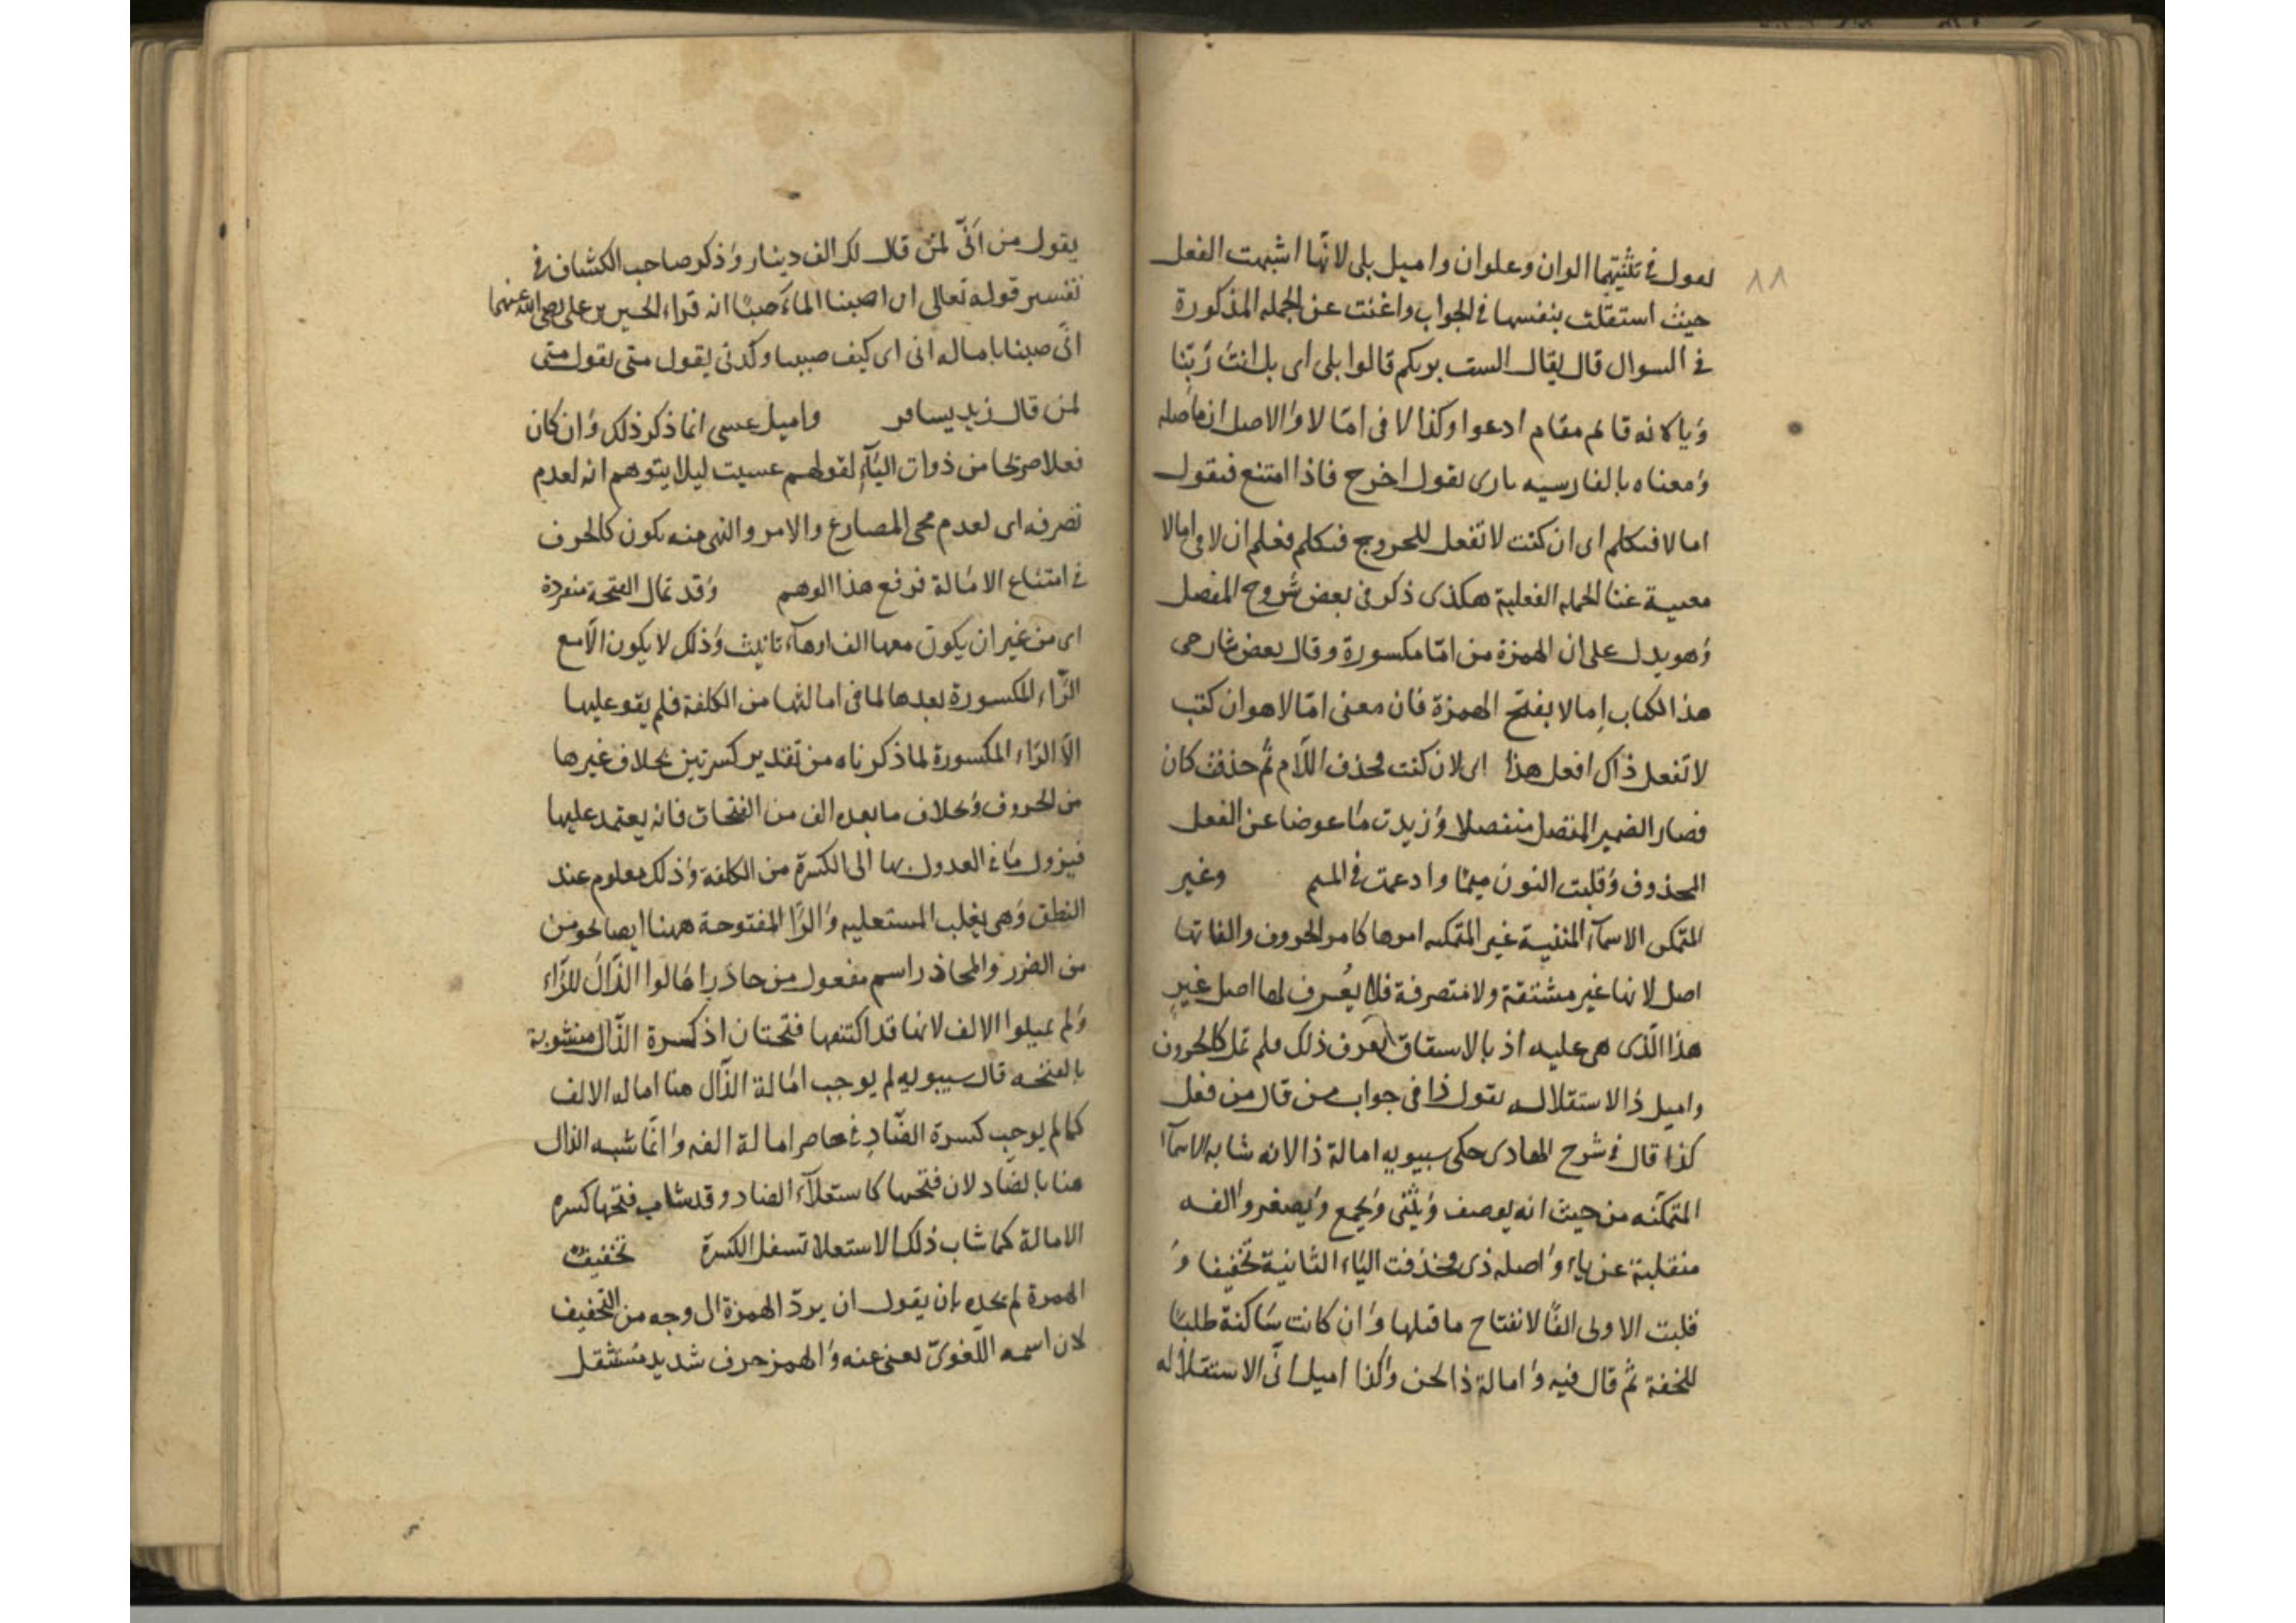 ٨٨
لقول في تثنيتهما الوان وعلوان واميل بلى لانّها اشبهت الفعل
حيث استقلت بنفسها في الجواب واغنت عن الجمله المذكورة
في السوال قال يقال الست بربكم قالوا بلى اى بل انت ربّنا
ويا لانه قائم مقام ادعوا وكذا لا فى امّا لا والاصل ان ما صله
ومعناه بالفارسيه بارى يقول اخرج فاذا امتنع فيقول
اما لا فتكلم اى ان كنت لا تفعل للخروج فتكلم فعلم ان لا فى امالا
مغنية عنا الجمله الفعلية هكذى ذكر فى بعض شروح المفصل
وهو يدل على ان الهمزة من امّا مكسورة وقال بعض شارحى
هذا الكتاب امالا بفتح الهمزة فان معنى امّا لا هو ان كنت
لا تفعل ذاك افعل هذا اى لان كنت فحذف اللّام ثم حذفت كان
فصار الضمير المتصل منفصلا وزيدت ما عوضا عن الفعل
المحذوف وقلبت النون ميمًا وادغمت في الميم وغير
المتمكن الاسمآء المبنية غير المتمكنه امرها كامر الحروف والفاتها
اصل لانها غير مشتقة ولا متصرفة فلا يُعرف لها اصل غير
هذا الّذى هى عليه اذ بالاشتقاق يعرف ذلك فلم تمل كالحروف
واميل ذا لاستقلاله يقول ذا فى جواب من قال من فعل
كذا قال في شرح الهادى حكى سيبويه امالة ذا لانه شابه الاسمآء
المتمكنه من حيث انه يوصف ويثنّى ويجمع ويصغر والفه
منقلبة عن ياء واصله ذى فحذفت الياء الثانية تخفيفا و
قلبت الاولى الفًا لانفتاح ما قبلها وان كانت ساكنة طلبًا
للخفة ثم قال فيه وامالة ذا لحن وكذا اميل انّى لاستقلاله
يقول من انّى لمن قال لك الف دينار وذكر صاحب الكشاف في
تفسير قوله تعالى انا صببنا الماء صبًا انه قراء الحسين بن على رضى الله عنهما
انّى صببنا باماله انى اى كيف صببنا وكذى يقول متى يقول متى
لمن قال زيد يسافر واميل عسى انما ذكر ذلك وان كان
فعلا صرحا من ذوات اليآء لقولهم عسيت ليلا يتوهم انه لعدم
تصرفه اى لعدم مجى المضارع والامر والنهى منه يكون كالحرف
في امتناع الامالة فرفع هذا الوهم وقد تمال الفتحة منفردة
اى من غير ان يكون معها الف او هآء تانيث وذلك لا يكون الّا مع
الرّاء المكسورة بعدها لما فى امالتها من الكلفة فلم يقو عليها
الّا الرّاء المكسورة لما ذكرناه من تقدير كسرتين بخلاف غيرها
من الحروف وبخلاف ما بعده الف من الفتحات فانه يعتمد عليها
فيزول ما في العدول بها الى الكسرة من الكلفة وذلك معلوم عند
النطق وهى يغلب المستعليه والرّا المفتوحة ههنا ايضا نحو من
من الضرر والمحاذر اسم مفعول من حاذر امالوا الذّال للرّاء
ولم يميلوا الالف لانها قد اكتنفها فتحتان اذ كسرة الذّال مشوبة
بالفتحه قال سيبويه لم يوجب امالة الذّال هنا اماله الالف
كما لم يوجب كسرة الضّاد في عاصر امالة الفه وانّما شبه الذال
هنا بالضاد لان فتحها كاستعلآء الضاد وقد شاب فتحها كسره
الامالة كما شاب ذلك الاستعلا تسفل الكسرة تخفيف
الهمزة لم يحده بان يقول ان يردّ الهمزة ال وجه من التخفيف
لان اسمه اللّغوىّ يعنى عنه والهمز حرف شديد مستثقل